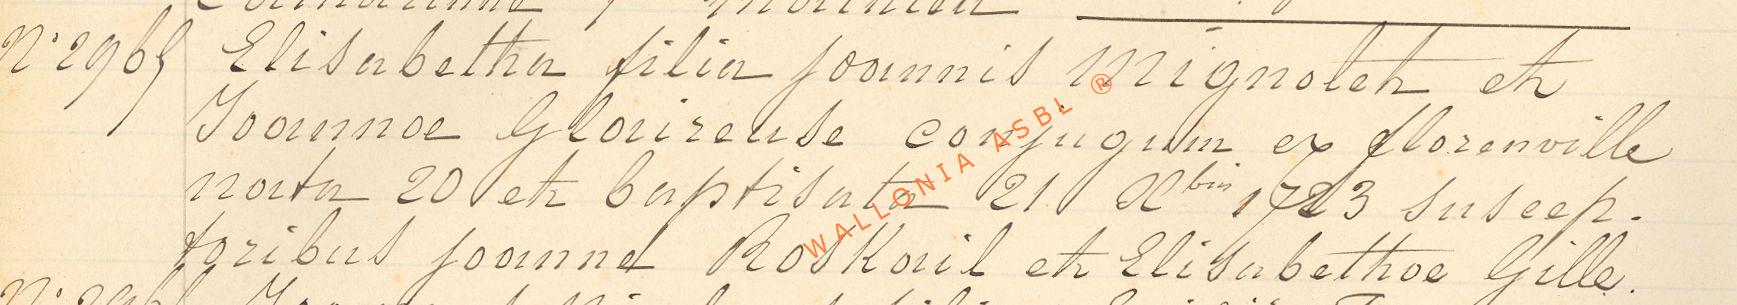 N° 2965 Elisabetha filia Joannis Mignolet et
Joannae Glaireuse conjugum ex florenville
nata 20 et baptisata 21 Xbris 1723 suscep-
toribus Joanne Roskail et Elisabethae Gille.
WALLONIA ASBL ®